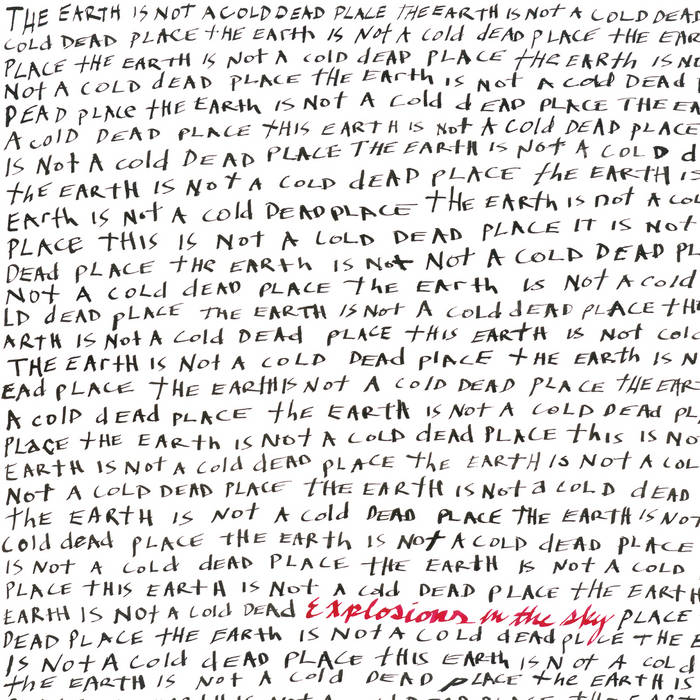 THE EARTH IS NOT A COLD DEAD PLACE THE EARTH IS NOT A COLD DEAD
COLD DEAD PLACE tHE EARth IS Not A Cold dEAD PLACE tHE EAR
PLACE tHE EARtH IS Not A cold dEAD PLACE tHE EARtH IS NO
Not A COLD dEAD PLACE tHE EARth IS Not A cold DEAD
DEAD pLACe tHE EARth IS Not A Cold dEAD PLACE THE EA
A colD DEAD PLACE tHIS EARtH IS Not A Cold DEAD PLACE
IS Not A cold DEAD PLACE THE EARtH IS Not A COLD d
tHE EARTH IS Not A COLD dEAD PLACE tHE EARtH IS
EARth IS Not A cold DEAD PLACE tHE EARtH IS not A col
PLACE tHIS IS Not A COLD DEAD PLACE IT IS Not
DEAd pLACE tHe EARth IS Not Not A COLD DEAD PL
Not A cold dEAD PLACE the EARth IS Not A cold
LD dEAD pLACE tHE EARTH IS Not A cold dEAD pLACE tH
ARTH IS NoT A cold DEAd pLACE tHIS EARtH IS Not col
THE EARtH IS Not A COLD DEAd plACE tHE EARth IS N
EAd pLACE THE EARtH IS Not A colD DEAD PLACE tHE EAR
A colD dEAD pLACE thE EARtH IS Not A COLD DEAd PL
PLACE tHE EARtH IS NoT A COLD dEAd PLACE thIS IS No
EARtH IS Not A cold dEAD pLACE thE EARTH IS Not A COL
Not A COLD DEAD PLACE THE EARTH IS Not a COLD dEAD
thE EARTH IS Not A cold DEAD PLACE THE EARTH IS NOT
cold deAd pLACE tHE EARtH IS NoT A COLD dEAD PLACE
IS Not A cold dEAD PLACE tHE EARtH IS Not A COLD
PLACE tHIS EARtH IS Not A cold DEAD PLACE tHE EARtH
EARtH IS Not A Cold DEAD Explosions in the sky PLACE
DEAD PLACE tHE EARth IS NoT A COLD dEAd pLACE tHE
IS Not A Cold dEAD PLACE tHIS EARth IS Not A cold
tHE EARtH IS Not A COLD DEAD pLACE tHe EARtH IS